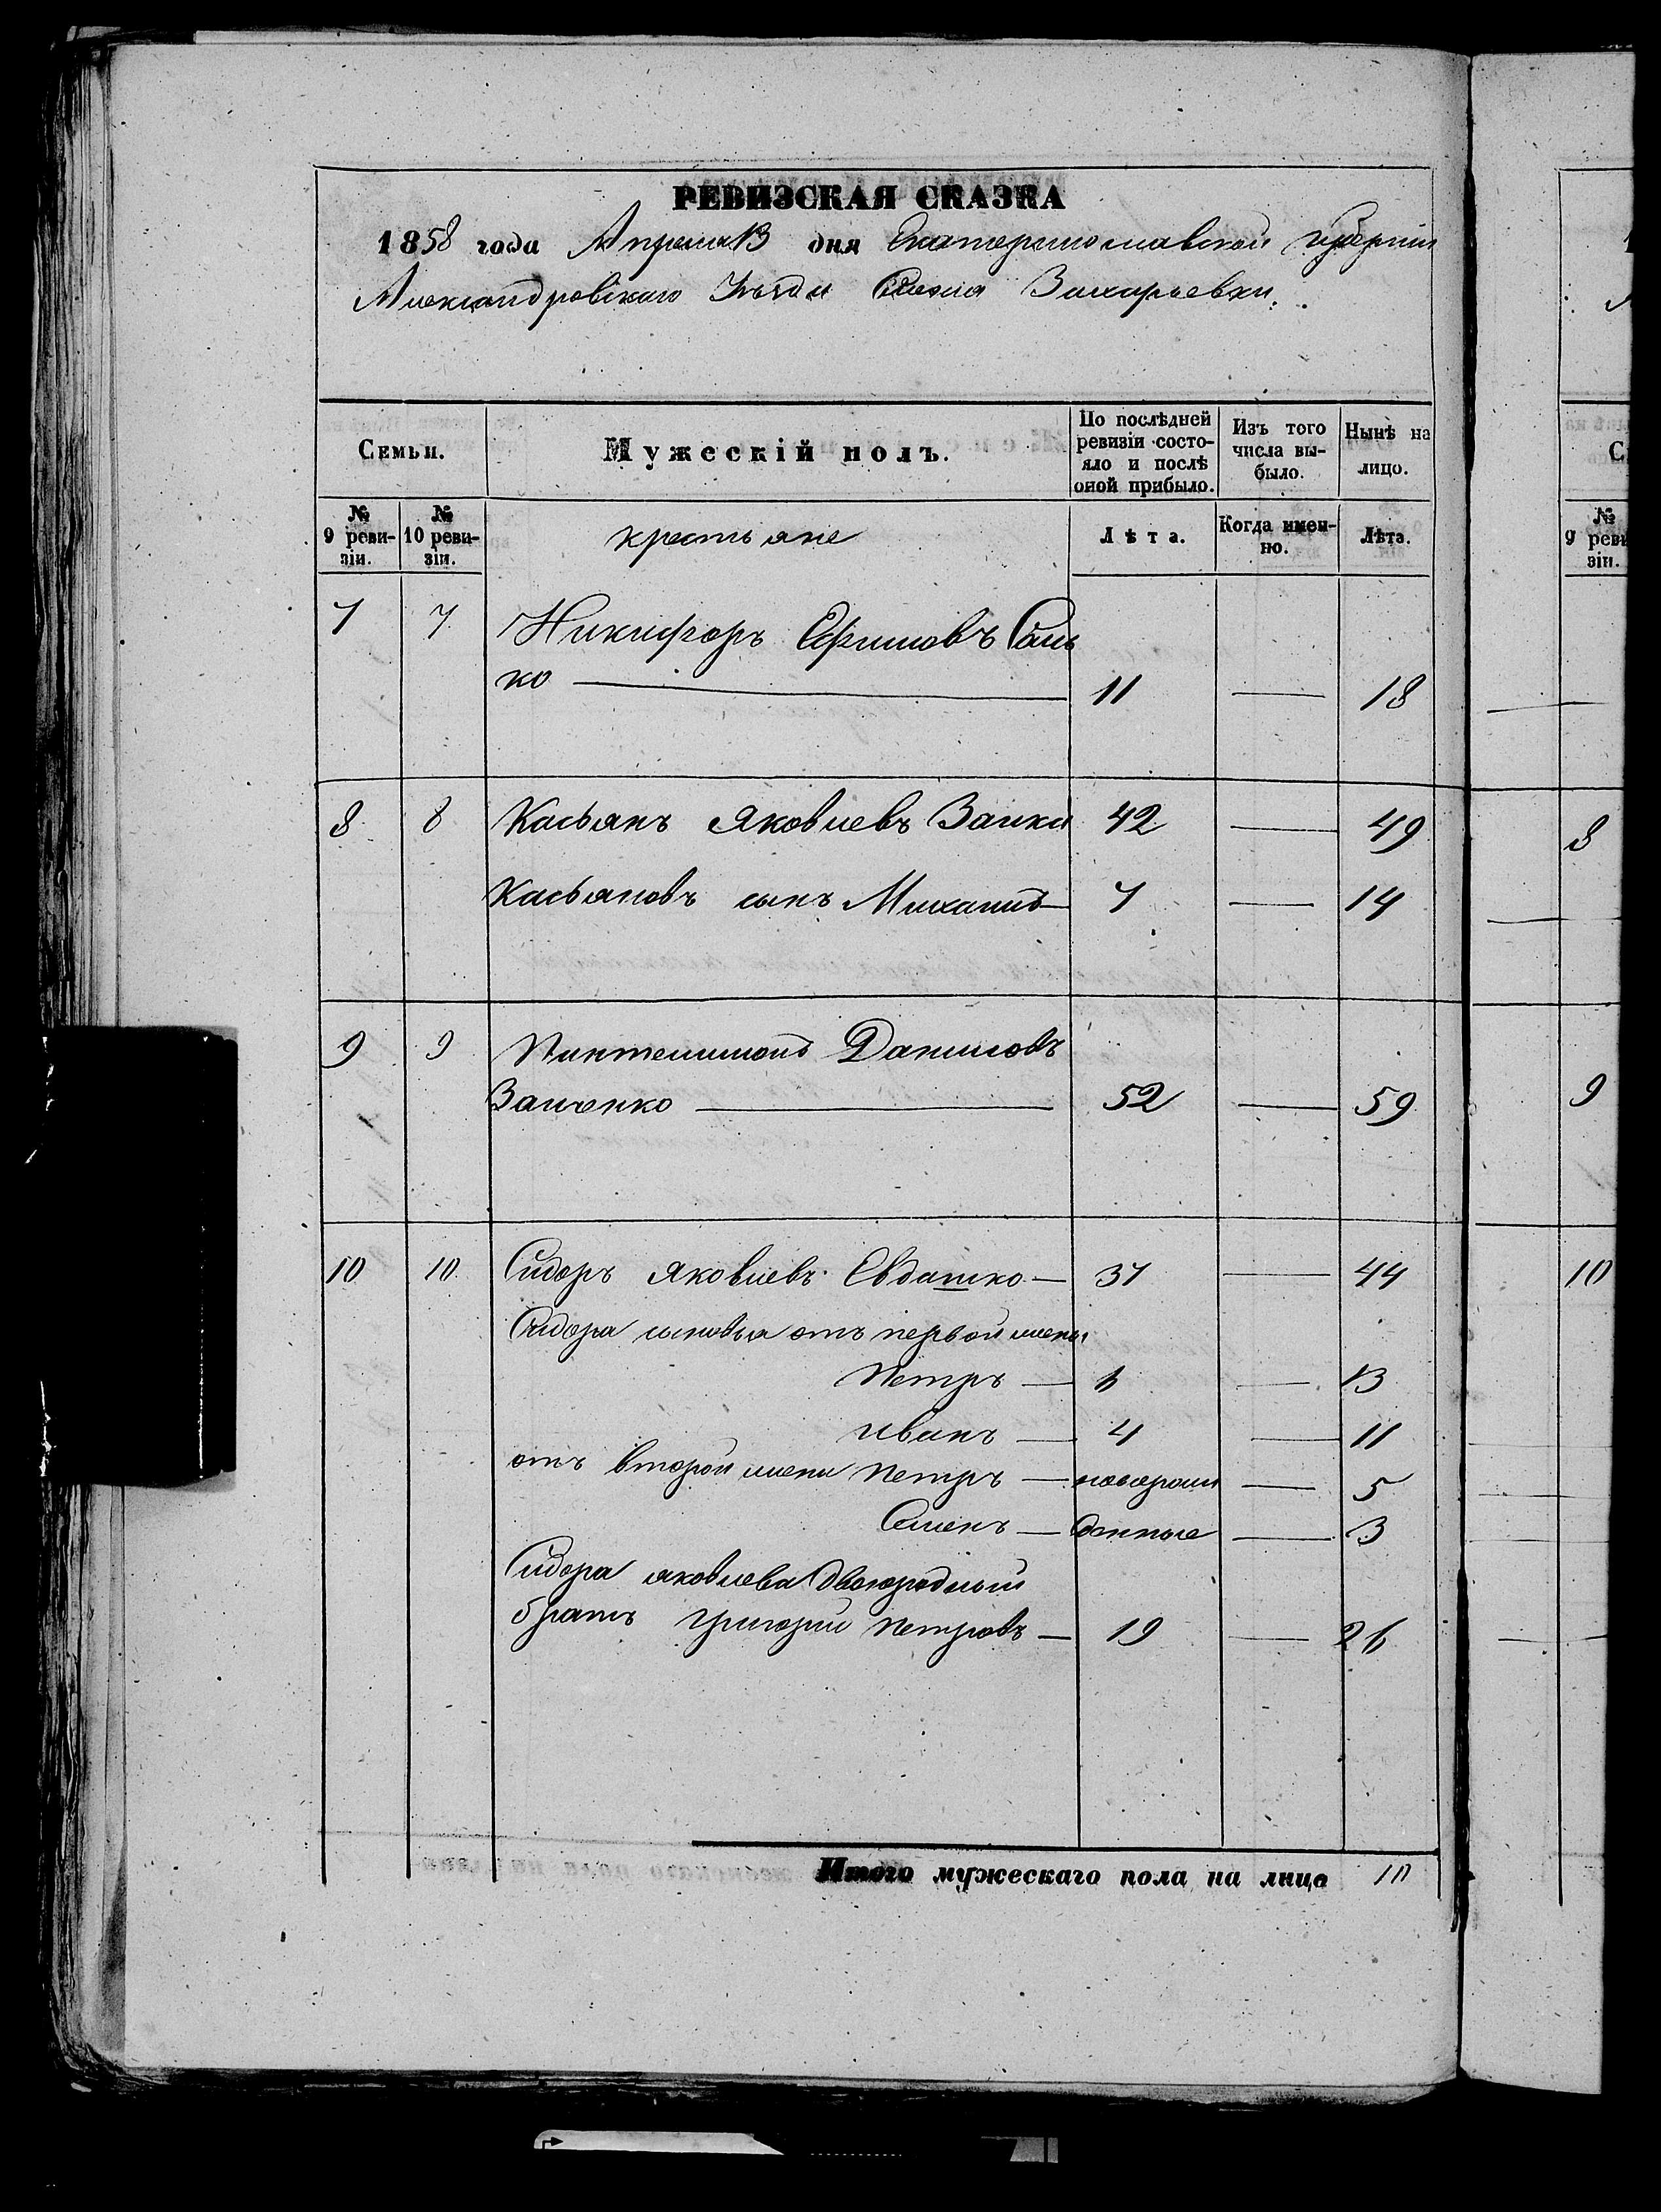 РЕВИЗСКАЯ СКАЗКА
1858 года Апреля 13 дня Екатеринославской губернии
Александровскаго Уѣзда Села Захарьевки.
Семьи.
Мужескій полъ.
По послѣдней ревизіи состо-яло и послѣ оной прибыло.
Изъ того числа вы-было.
Нынѣ на лицо.
№ 9 реви-зіи.
№ 10 реви-зіи.
крестьяне
Лѣта.
Когда имен-но.
Лѣта.
7 7 Никифоръ Ефимовъ Сань
ко — 11 — 18
8 8 Касьянъ Яковлевъ Заика 42 — 49
Касьяновъ сынъ Михаилъ — 7 — 14
9 9 Пантелимонъ Даниловъ
Заиченко — 52 — 59
10 10 Сидоръ Яковлевъ Евдашко — 37 — 44
Сидора сыновья отъ первой жены
Петръ — 6 — 13
Иванъ — 4 — 11
отъ второй жены Петръ — новорож — 5
Семенъ — денные — 3
Сидора Яковлева двоюродный
братъ Григорий Петровъ — 19 — 26
Итого мужескаго пола на лицо 10
№ 9 реви зіи.
8
9
10